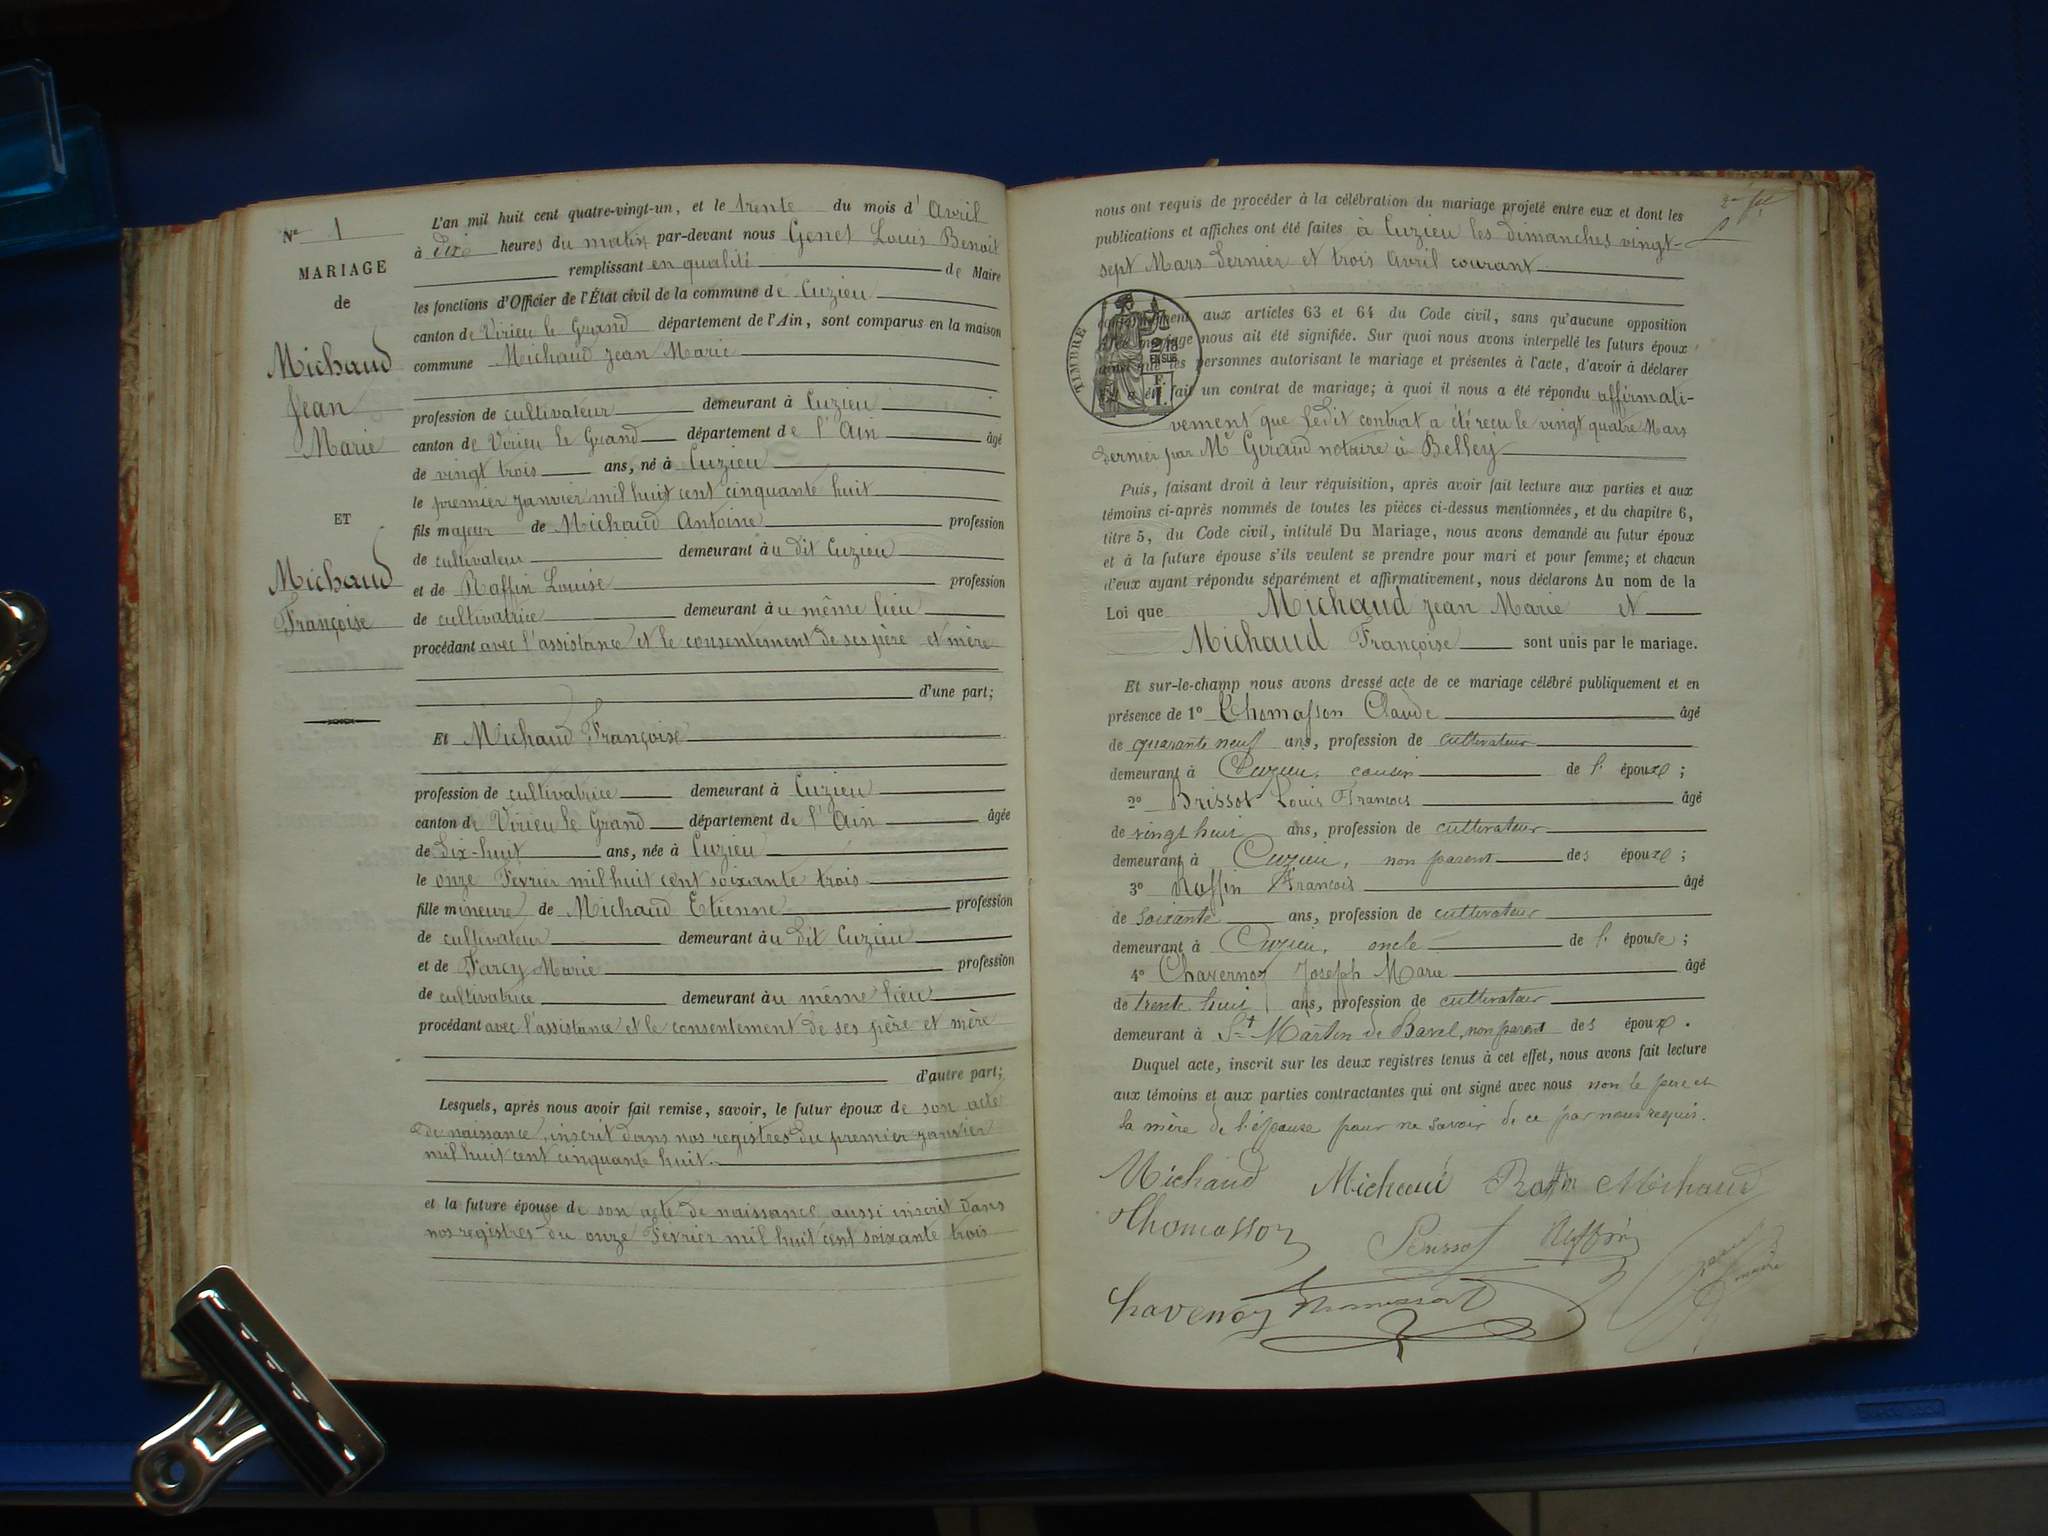 N° 1
MARIAGE
de
Michaud
Jean
Marie
ET
Michaud
Françoise
L'an mil huit cent quatre-vingt-un, et le trente du mois d' Avril
à dix heures du matin par-devant nous Genet Louis Benoit
remplissant en qualité de Maire
les fonctions d'Officier de l'État civil de la commune de Cuzieu
canton de Virieu le Grand département de l'Ain, sont comparus en la maison
commune Michaud Jean Marie
profession de cultivateur demeurant à Cuzieu
canton de Virieu le Grand département de l'Ain âgé
de vingt trois ans, né à Cuzieu
le premier janvier mil huit cent cinquante huit
fils majeur de Michaud Antoine profession
de cultivateur demeurant au dit Cuzieu
et de Raffin Louise profession
de cultivatrice demeurant au même lieu
procédant avec l'assistance et le consentement de ses père et mère
d'une part;
Et Michaud Françoise
profession de cultivatrice demeurant à Cuzieu
canton de Virieu le Grand département de l'Ain âgée
de dix-huit ans, née à Cuzieu
le onze Février mil huit cent soixante trois
fille mineure de Michaud Etienne profession
de cultivateur demeurant au dit Cuzieu
et de Farcy Marie profession
de cultivatrice demeurant au même lieu
procédant avec l'assistance et le consentement de ses père et mère
d'autre part;
Lesquels, après nous avoir fait remise, savoir, le futur époux de son acte
de naissance, inscrit dans nos registres du premier janvier
mil huit cent cinquante huit.
et la future épouse de son acte de naissance aussi inscrit dans
nos registres du onze Février mil huit cent soixante trois
nous ont requis de procéder à la célébration du mariage projeté entre eux et dont les
publications et affiches ont été faites à Cuzieu les dimanches vingt-
sept Mars dernier et trois Avril courant
conformément aux articles 63 et 64 du Code civil, sans qu'aucune opposition
mariage nous ait été signifiée. Sur quoi nous avons interpellé les futurs époux
ainsi que les personnes autorisant le mariage et présentes à l'acte, d'avoir à déclarer
a été fait un contrat de mariage; à quoi il nous a été répondu affirmati-
vement que ledit contrat a été reçu le vingt quatre Mars
dernier par Me Giraud notaire à Belley
TIMBRE
2/10
EN SUS
F.
1.
Puis, faisant droit à leur réquisition, après avoir fait lecture aux parties et aux
témoins ci-après nommés de toutes les pièces ci-dessus mentionnées, et du chapitre 6,
titre 5, du Code civil, intitulé Du Mariage, nous avons demandé au futur époux
et à la future épouse s'ils veulent se prendre pour mari et pour femme; et chacun
d'eux ayant répondu séparément et affirmativement, nous déclarons Au nom de la
Loi que Michaud Jean Marie et
Michaud Françoise sont unis par le mariage.
Et sur-le-champ nous avons dressé acte de ce mariage célébré publiquement et en
présence de 1° Thomasson Claude âgé
de quarante neuf ans, profession de cultivateur
demeurant à Cuzieu, cousin de l' époux ;
2° Brissot Louis François âgé
de vingt huit ans, profession de cultivateur
demeurant à Cuzieu, non parent des époux ;
3° Raffin François âgé
de soixante ans, profession de cultivateur
demeurant à Cuzieu, oncle de l' épouse ;
4° Chavernoz Joseph Marie âgé
de trente huit ans, profession de cultivateur
demeurant à St Martin de Bavel, non parent des époux.
Duquel acte, inscrit sur les deux registres tenus à cet effet, nous avons fait lecture
aux témoins et aux parties contractantes qui ont signé avec nous non le père et
la mère de l'épouse pour ne savoir de ce par nous requis.
Michaud Michaud Raffin Michaud
Thomasson Brissot Raffin
Chavernoz Thomasson